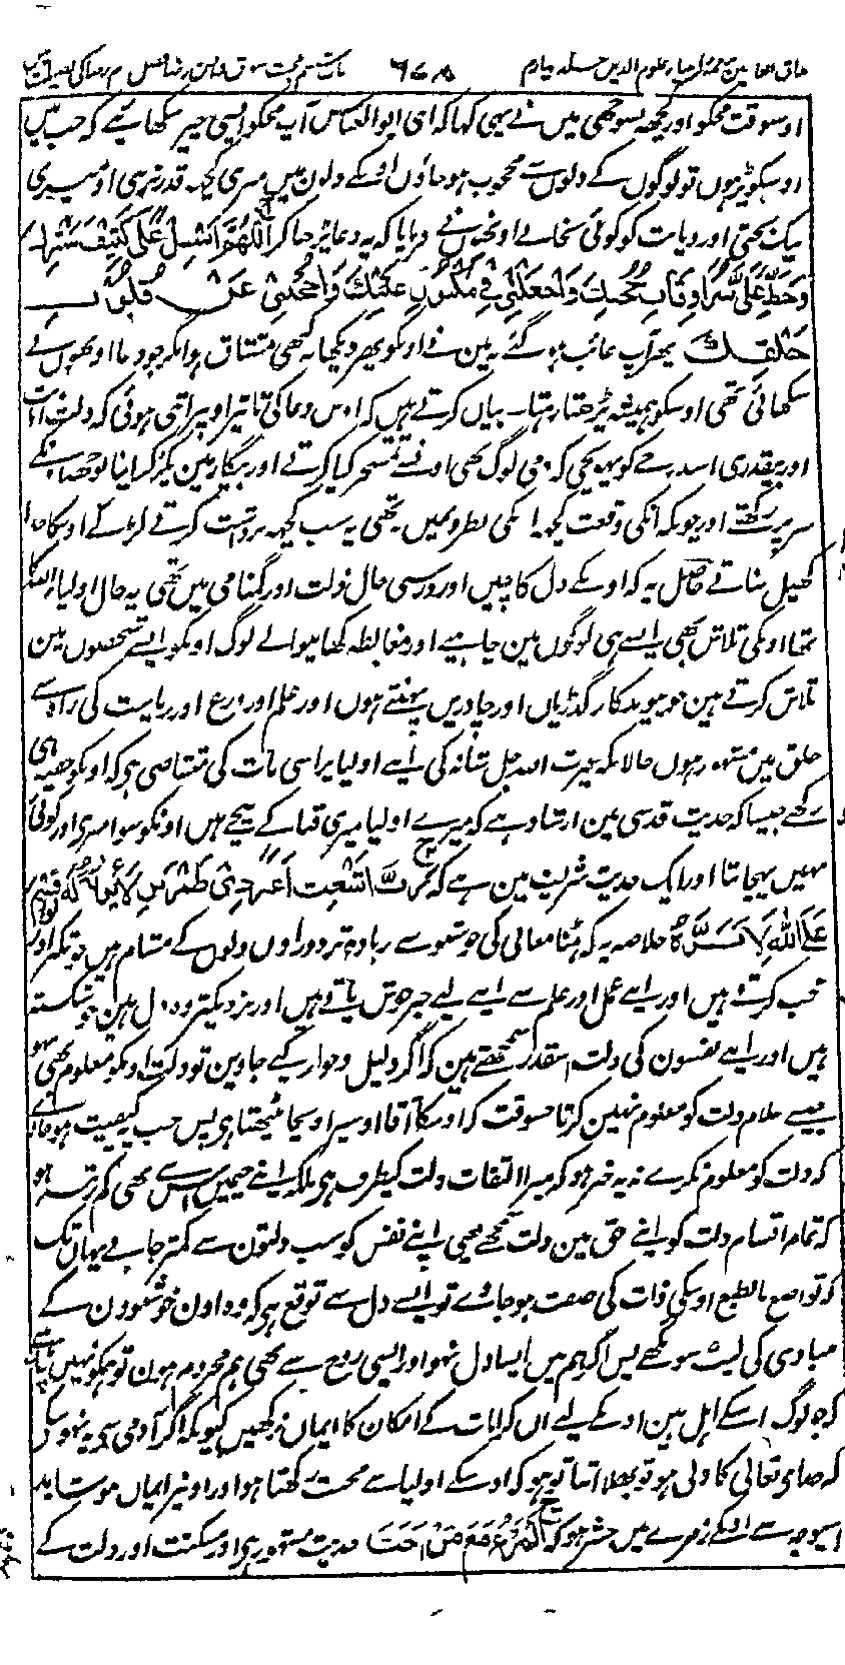 مذاق العارفین ترجمہ احیاء علوم الدین جلد چہارم ۶۷۸ باب ششم محبت و شوق و انس و رضا فصل
اوسوقت مجکو اور کچھ نسوجھی میں نے یہی کہا کہ ای ابو العباس آپ مجکو ایسی چیز سکھائیے کہ جب میں
اوسکو پڑہوں تو لوگوں کے دلوں سے محجوب ہوجاؤں اونکے دلون میں میری کچھ قدر نرہی اور میری
نیک بختی اور دیانت کو کوئی نجانے اونھوں نے فرمایا کہ یہ دعا پڑھا کر اَللّٰهُمَّ اَسْبِلْ عَلَيَّ كَثِيْفَ سَتْرِكَ
وَحُطَّ عَلَيَّ سُرَادِقَاتِ حُجُبِكَ وَاجْعَلْنِيْ فِيْ مَكْنُوْنِ غَيْبِكَ وَاحْجُبْنِيْ عَنْ قُلُوْبِ
خَلْقِكَ پھر آپ غائب ہو گئے مین نے اونکو پھر دیکھا نہ کبھی مشتاق ہوا مگر جو دعا اونھوں نے
سکھائی تھی اوسکو ہمیشہ پڑھتا رہتا۔ بیان کرتے ہیں کہ اوس دعا کی تاثیر اونپر اتنی ہوئی کہ ذلت
اور بیقدری اسدرجے کو پہونچی کہ ذمی لوگ بھی اونسے تمسخر کیا کرتے اور بیگار مین پکڑ کر اپنا بوجھ انکے
سر پر رکھتے اور چونکہ انکی وقعت کچھ انکی نظر میں نتھی یہ سب کچھ برداشت کرتے لڑکے اونکا
کھیل بناتے حاصل یہ کہ اونکے دل کا چین اور درستی حال ذلت اور گمنامی میں تھی یہ حال اولیاء اللہ کا
تھا اونکی تلاش بھی ایسے ہی لوگوں مین چاہیے اور مغالطہ کھانیوالے لوگ اونکو ایسے شخصوں مین
تلاش کرتے ہین جو پیوند کار گدڑیاں اور چادریں پہنتے ہوں اور علم اور ورع اور ریاست کی راہ سے
خلق میں مشہور ہوں حالانکہ غیرت اللہ جل شانہ کی اپنے اولیا پر اسی بات کی متقاضی ہی کہ اونکو چھپا ہی
رکھے جیسا کہ حدیث قدسی مین ارشاد ہے کہ میرے اولیا میری قبا کے نیچے ہیں اونکو سوا میری اور کوئی
نہیں پہچانتا اور ایک حدیث شریف مین ہے کہ رُبَّ اَشْعَثَ اَغْبَرَ ذِيْ طِمْرَيْنِ لَا يُؤْبَهُ لَهٗ لَوْ اَقْسَمَ
عَلَى اللهِ لَاَبَرَّهٗ خلاصہ یہ کہ ان معانی کی خوشبو سے زیادہ تر دور اون دلوں کے مشام ہیں جو تکبر اور
عجب کرتے ہیں اور اپنے عمل اور علم سے اپنے لیے خبر خوش پاتے ہیں اور نزدیکتر وہ دل ہین جو شکستہ
ہیں اور اپنے نفسون کی ذلت اسقدر سمجھتے ہین کہ اگر ذلیل و خوار کیے جاوین تو ذلت اونکو معلوم بھی نہو
جیسے غلام ذلت کو معلوم نہین کرتا جسوقت کہ اوسکا آقا اوس سے اونچا بیٹھتا ہی پس جب یہ کیفیت ہو جاوے
کہ ذلت کو معلوم نکرے نہ یہ خبر ہو کہ میرا التفات ذلت کیطرف ہی بلکہ اپنے جی میں اس سے بھی کم رتبہ ہو
کہ تمام اقسام ذلت کو اپنے حق مین ذلت سمجھے یعنی اپنے نفس کو سب ذلتون سے کمتر جانے یہاں تک
کہ تواضع بالطبع اوسکی ذات کی صفت ہو جاوے تو ایسے دل سے توقع ہی کہ وہ اون خوشبوون کے
مبادی کی لپٹ سونگھے پس اگر ہم میں ایسا دل نہو اور ایسی روح سے بھی ہم محروم ہون تو ہمکو نہیں چاہیے
کہ جو لوگ اسکے اہل ہین اونکے لیے ان کرامات کے امکان کا ایمان نرکھیں کیونکہ اگر آدمی سے یہ نہوسکے
کہ خدای تعالی کا ولی ہو تو بھلا اتنا تو ہو کہ اوسکے اولیا سے محبت رکھتا ہو اور اونپر ایمان ہو شاید
اسی وجہ سے اونکے زمرے میں حشر ہو کہ اَلْمَرْءُ مَعَ مَنْ اَحَبَّ حدیث مشہور ہی اور مسکنت اور ذلت کے